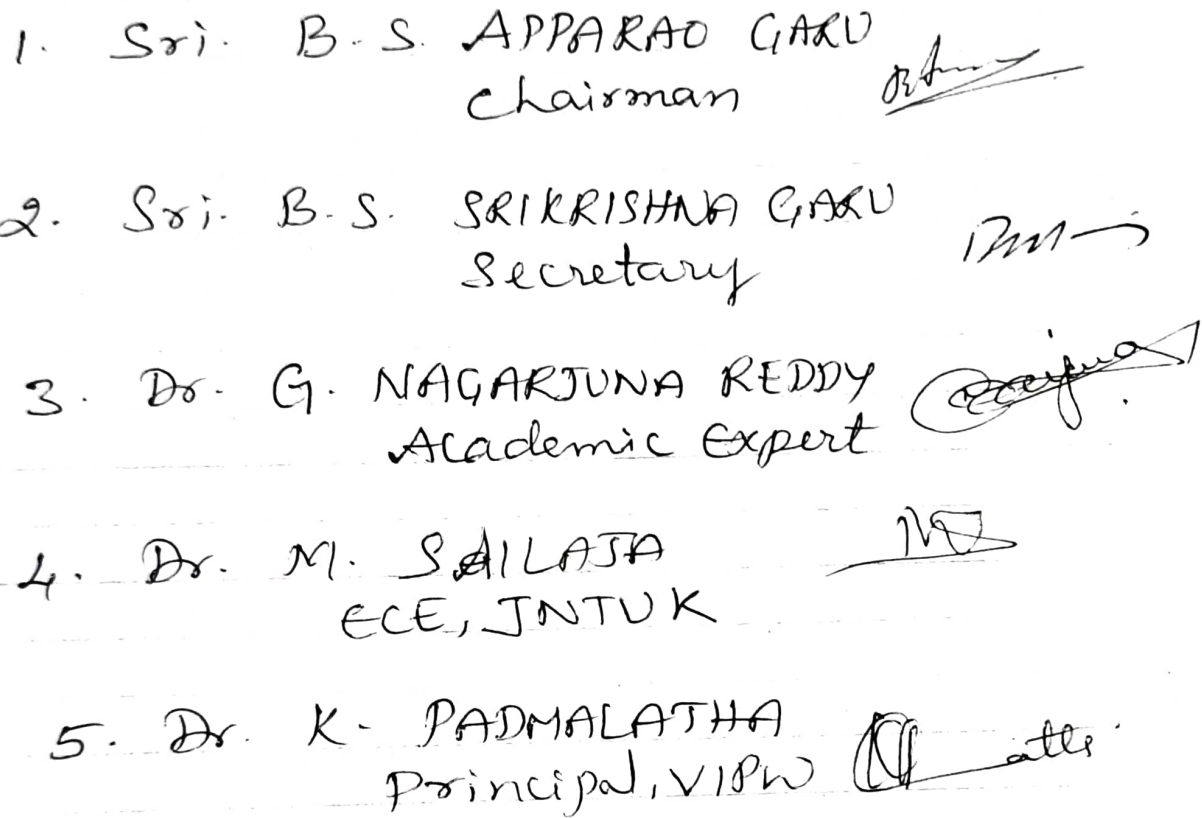 1. Sri. B.S. APPARAO GARU
Chairman
2. Sri. B.S. SRIKRISHNA GARU
Secretary
3. Dr. G. NAGARJUNA REDDY
Academic Expert
4. Dr. M. SAILAJA
ECE, JNTUK
5. Dr. K. PADMALATHA
Principal, VIPW